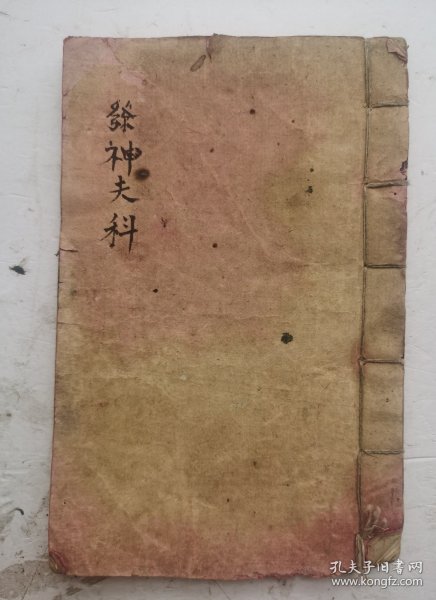 發神夫科
孔夫子旧书网
www.kongfz.com